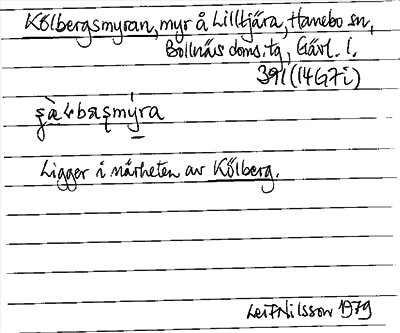 Kölbergsmyran, myr å Lilltjära, Hanebo sn,
Bollnäs doms:tg, Gävl. l.
391 (14G7i)
Ligger i närheten av Kölberg.
Leif Nilsson 1979